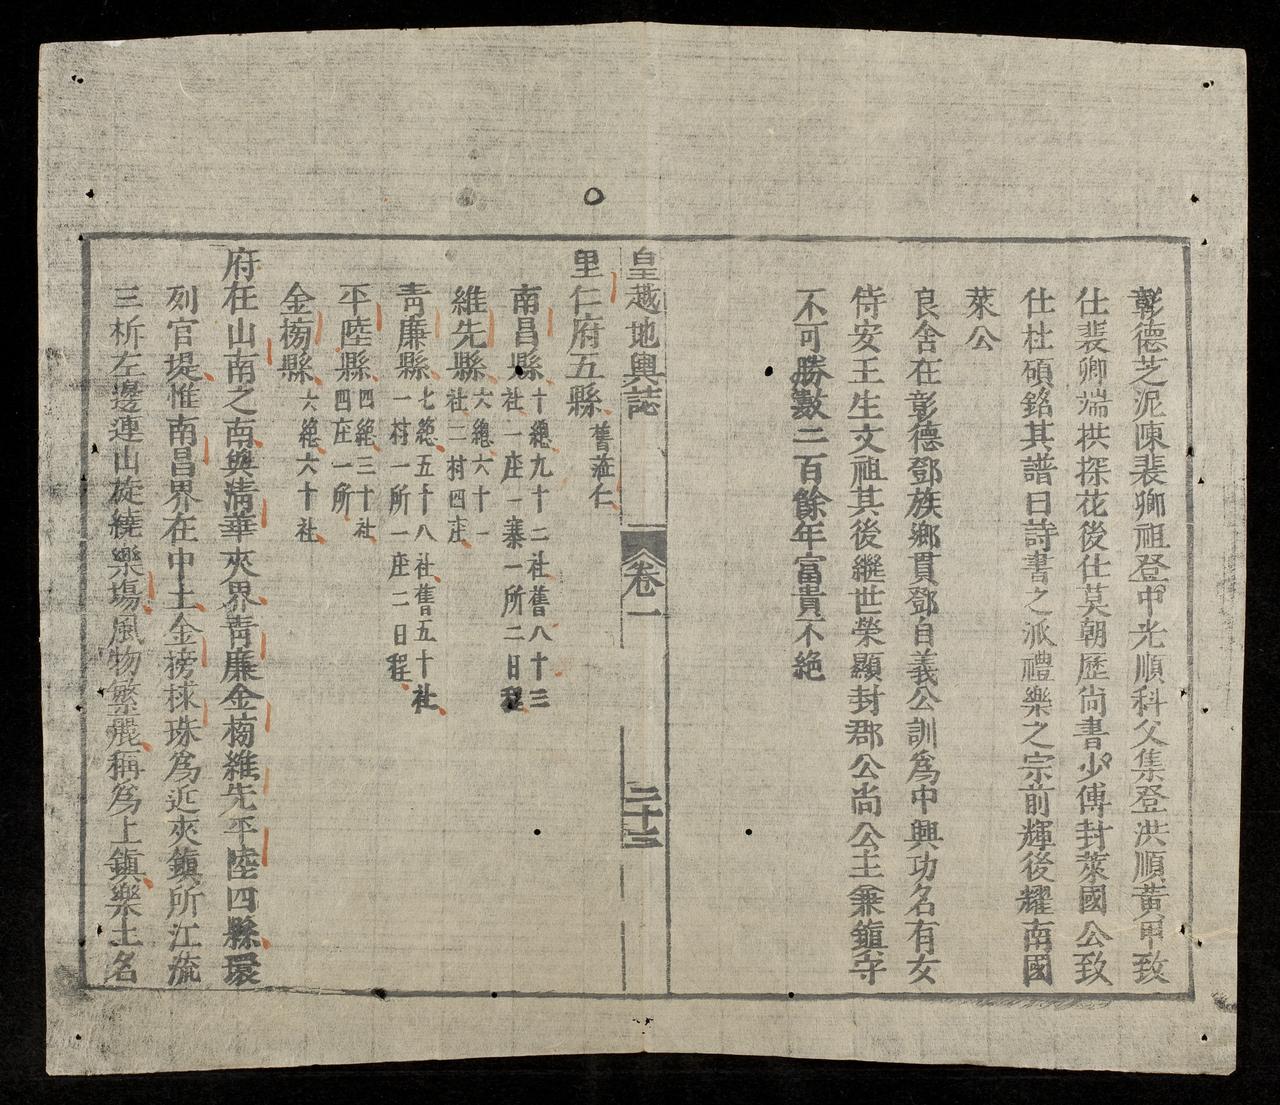 彰德芝泥陳裴卿祖登中光順科父集登洪順黃甲致
仕裴卿端拱探花後仕莫朝歷尚書少傅封萊國公致
仕杜碩銘其譜曰詩書之派禮樂之宗前輝後耀南國
萊公
良舍在彰德鄧族鄉貫鄧自義公訓爲中興功名有女
侍安王生文祖其後繼世榮顯封郡公尚公主兼鎮守
不可勝數二百餘年富貴不絶
皇越地輿誌
卷一
二十三
里仁府五縣
舊蒞仁
南昌縣
十總九十二社舊八十三
社一庄一寨一所二日程
維先縣
六總六十一
社二村四庄
青廉縣
七總五十八社舊五十社
一村一所一庄二日程
平陸縣
四總三十社
四庄一所
金榜縣
六總六十社
府在山南之南與清華夾界青廉金榜維先平陸四縣環
列官堤惟南昌界在中土金榜捸珠爲近夾鎮所江流
三析左邊連山旋繞樂塲風物繁麗稱爲上鎮樂土名